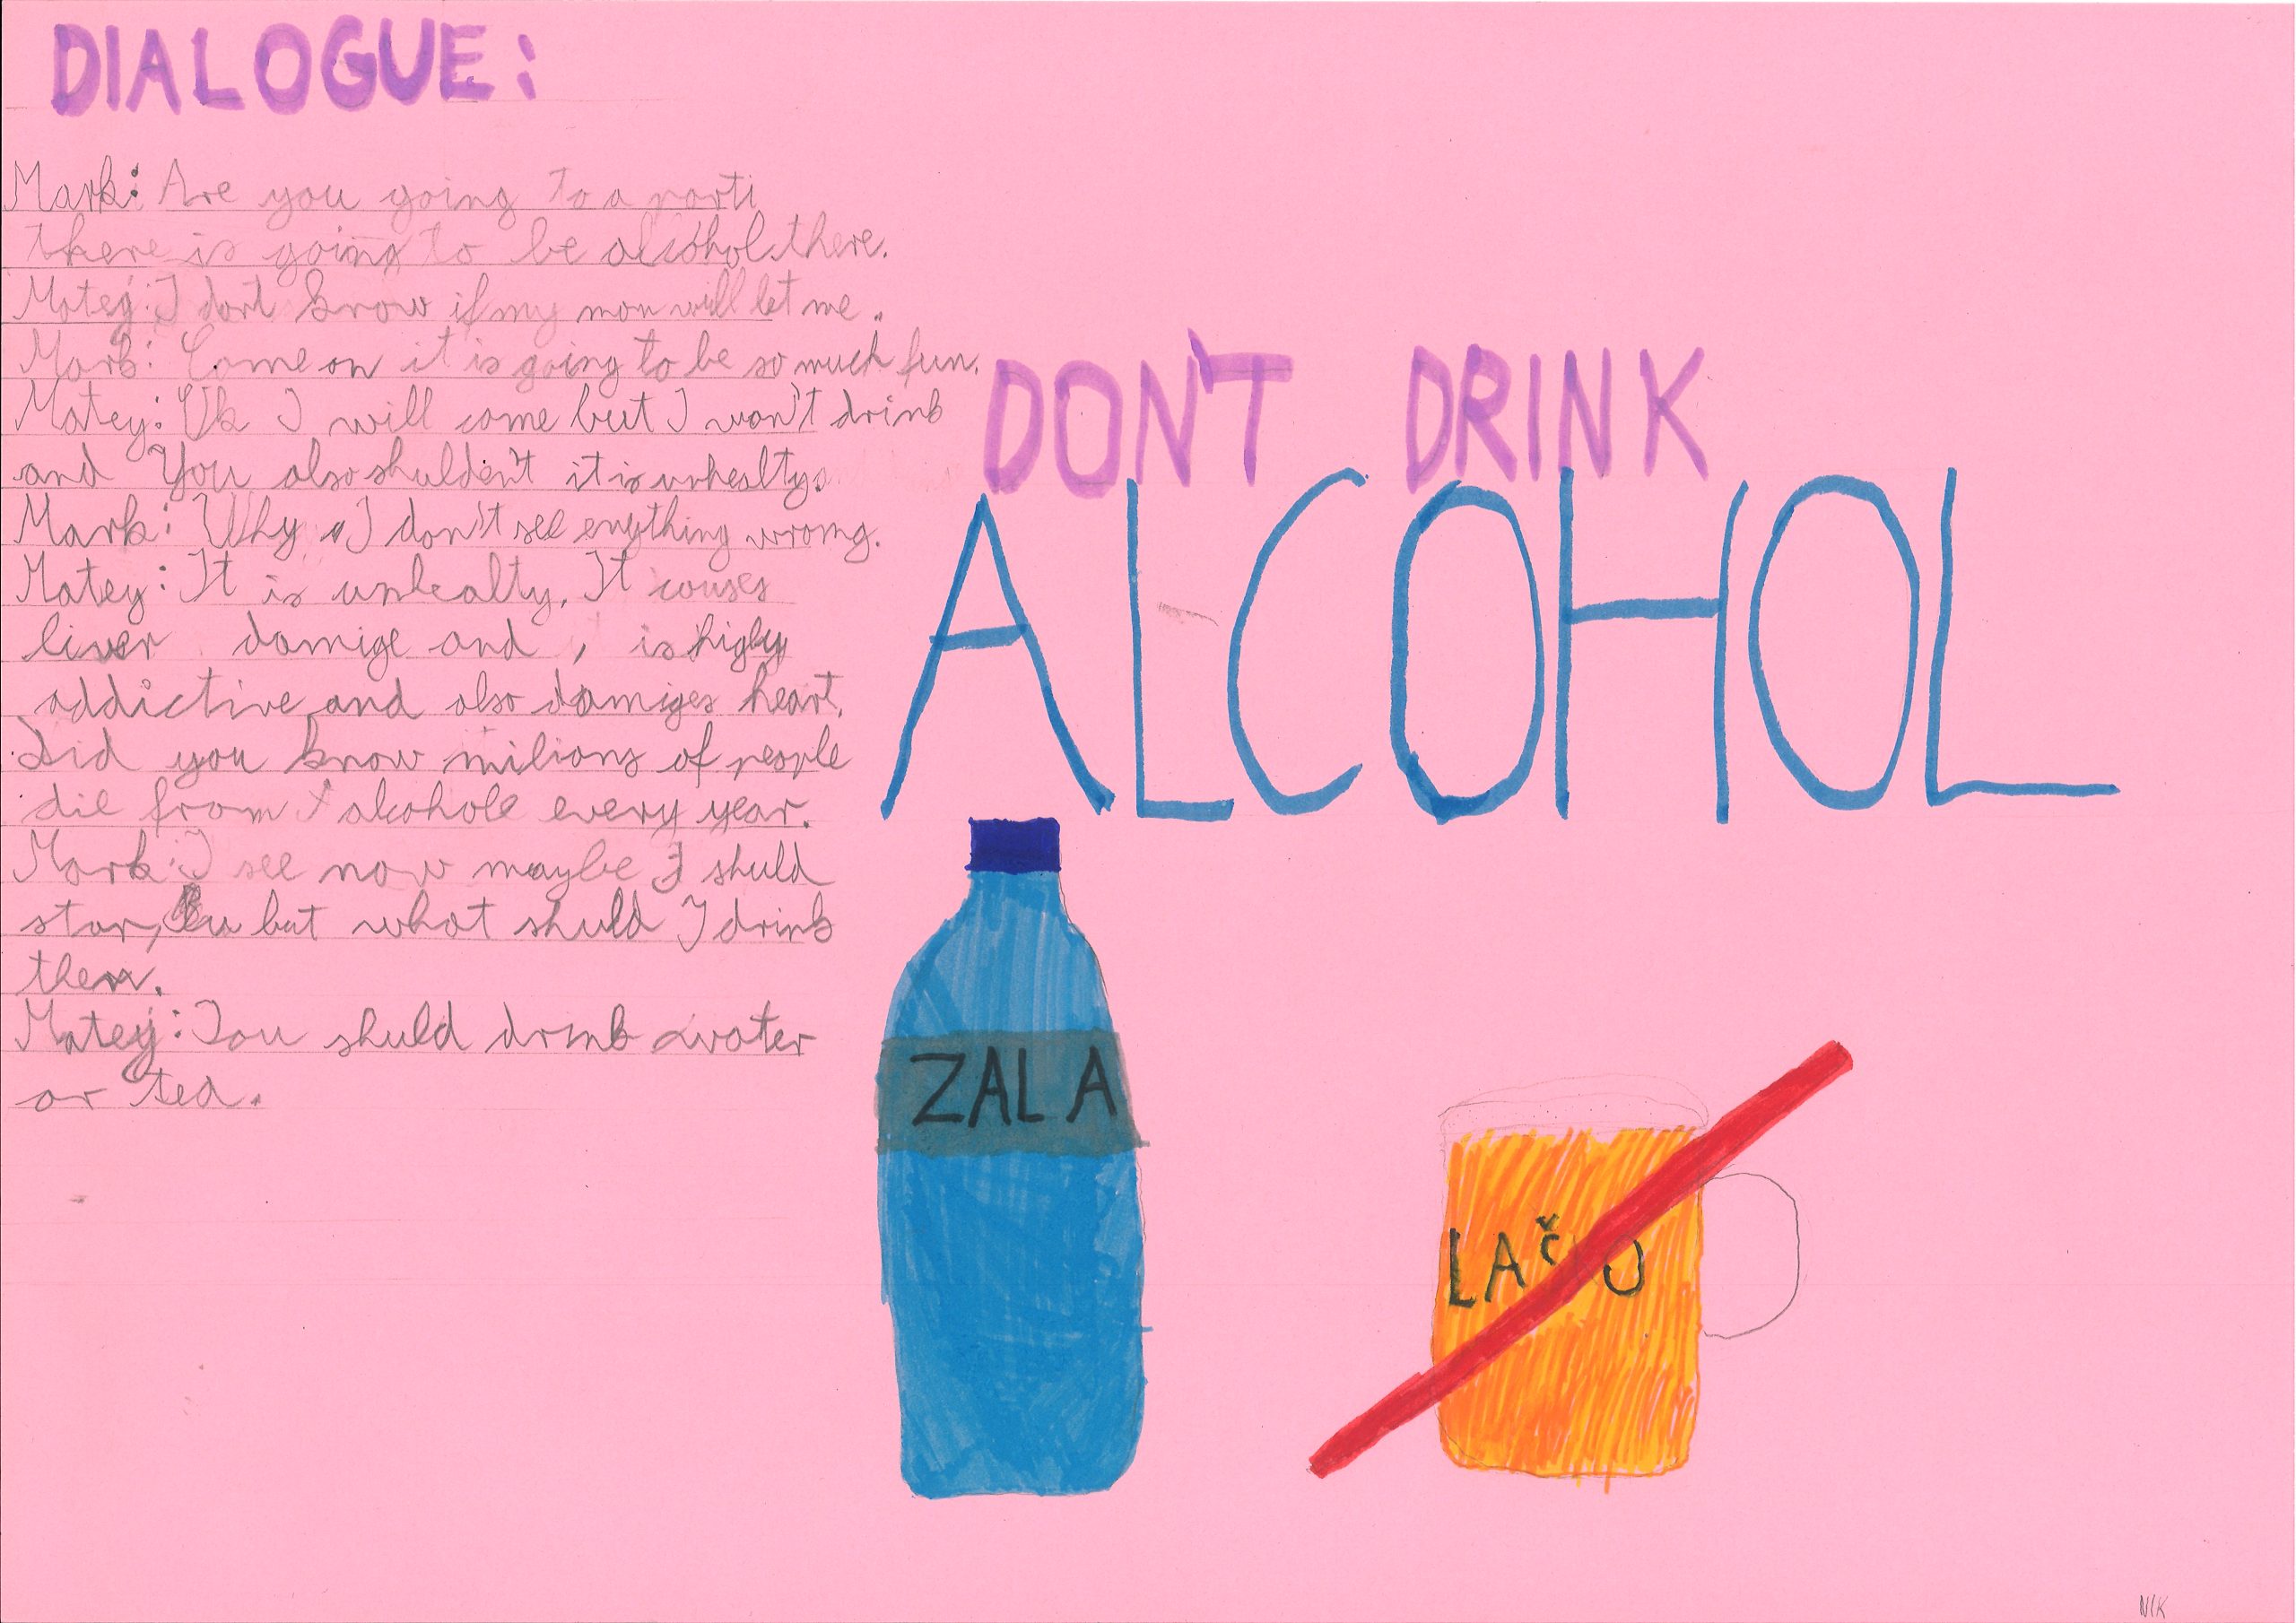 DIALOGUE:
Mark: Are you going to a parti
there is going to be alcohol there.
Matey: I dont know if my mom will let me.
Mark: Come on it is going to be so much fun.
Matey: Ok I will come but I won't drink
and You also shulden't it is unhealty.
Mark: Why I don't see enything wrong.
Matey: It is unhealty. It couses
liver damige and, is higly
addictive and also damiges heart.
Did you know milions of people
die from alcohole every year.
Mark: I see now maybe I shuld
stop, but what shuld I drink
then.
Matey: You shuld drink water
or tea.
DON'T DRINK
ALCOHOL
ZALA
LAŠKO
NIK